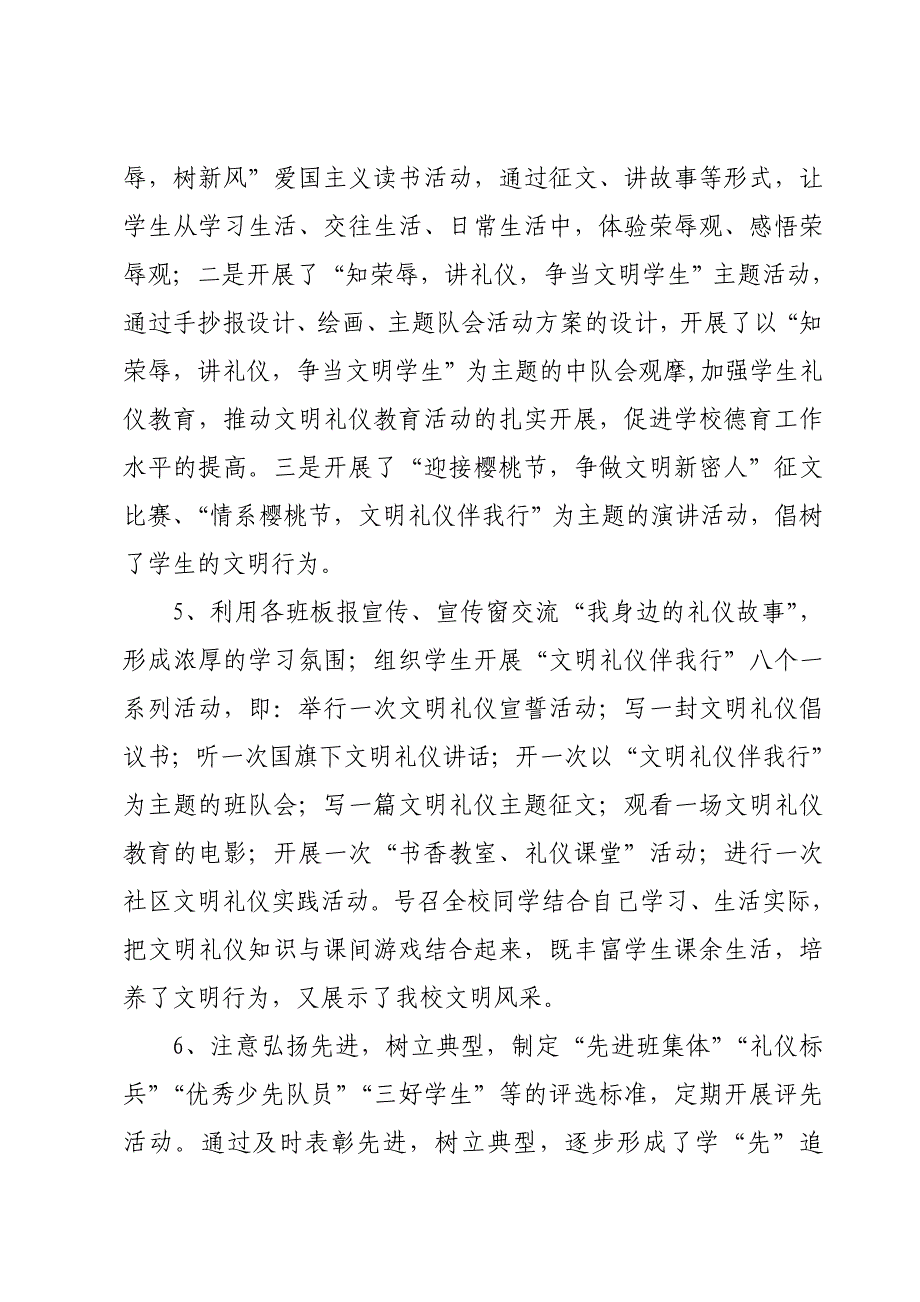 辱，树新风”爱国主义读书活动，通过征文、讲故事等形式，让
学生从学习生活、交往生活、日常生活中，体验荣辱观、感悟荣
辱观；二是开展了“知荣辱，讲礼仪，争当文明学生”主题活动，
通过手抄报设计、绘画、主题队会活动方案的设计，开展了以“知
荣辱，讲礼仪，争当文明学生”为主题的中队会观摩,加强学生礼
仪教育，推动文明礼仪教育活动的扎实开展，促进学校德育工作
水平的提高。三是开展了“迎接樱桃节，争做文明新密人”征文
比赛、“情系樱桃节，文明礼仪伴我行”为主题的演讲活动，倡树
了学生的文明行为。
5、利用各班板报宣传、宣传窗交流“我身边的礼仪故事”，
形成浓厚的学习氛围；组织学生开展“文明礼仪伴我行”八个一
系列活动，即：举行一次文明礼仪宣誓活动；写一封文明礼仪倡
议书；听一次国旗下文明礼仪讲话；开一次以“文明礼仪伴我行”
为主题的班队会；写一篇文明礼仪主题征文；观看一场文明礼仪
教育的电影；开展一次“书香教室、礼仪课堂”活动；进行一次
社区文明礼仪实践活动。号召全校同学结合自己学习、生活实际，
把文明礼仪知识与课间游戏结合起来，既丰富学生课余生活，培
养了文明行为，又展示了我校文明风采。
6、注意弘扬先进，树立典型，制定“先进班集体”“礼仪标
兵”“优秀少先队员”“三好学生”等的评选标准，定期开展评先
活动。通过及时表彰先进，树立典型，逐步形成了学“先”追